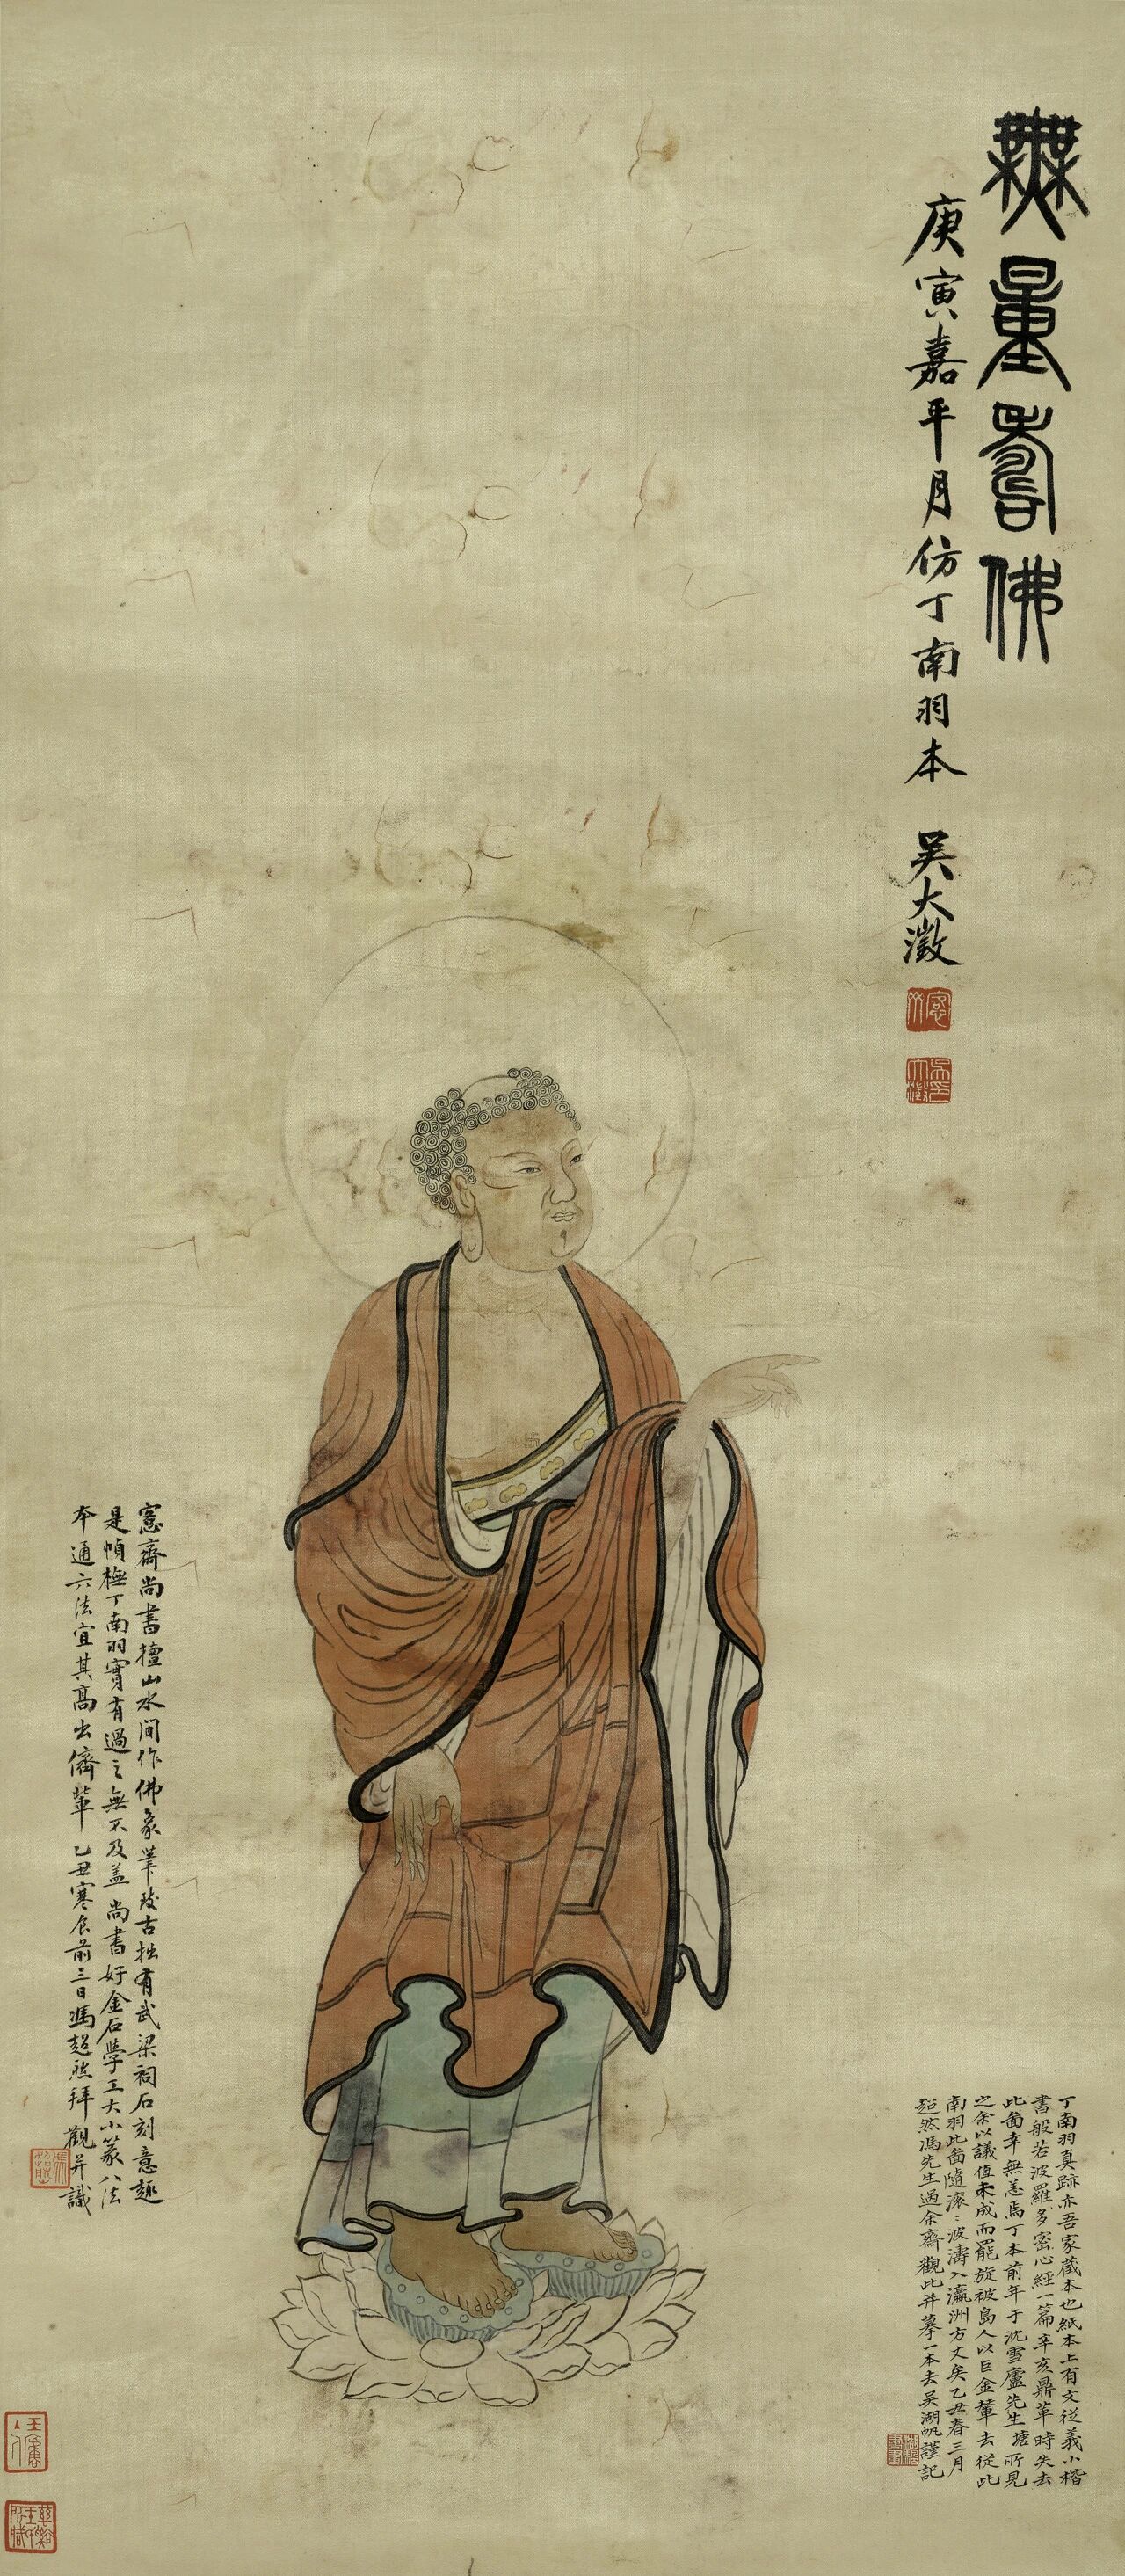 無量壽佛
庚寅嘉平月仿丁南羽本 吳大澂
愙齋
吳印大澂
愙齋尚書擅山水間作佛象筆致古拙有武梁祠石刻意趣
是幀橅丁南羽實有過之無不及蓋尚書好金石學工大小篆八法
本通六法宜其高出儕輩 乙丑寒食前三日馮超然拜觀并識
丁南羽真跡亦吾家藏本也紙本上有文從義小楷
書般若波羅多密心經一篇辛亥鼎革時失去
此圖幸無恙焉丁本前年于沈雪廬先生塘所見
之余以議值未成而罷旋被島人以巨金輦去從此
南羽此圖隨滾〻波濤入瀛洲方丈矣乙丑春三月
超然馮先生過余齋觀此并摹一本去吳湖帆謹記